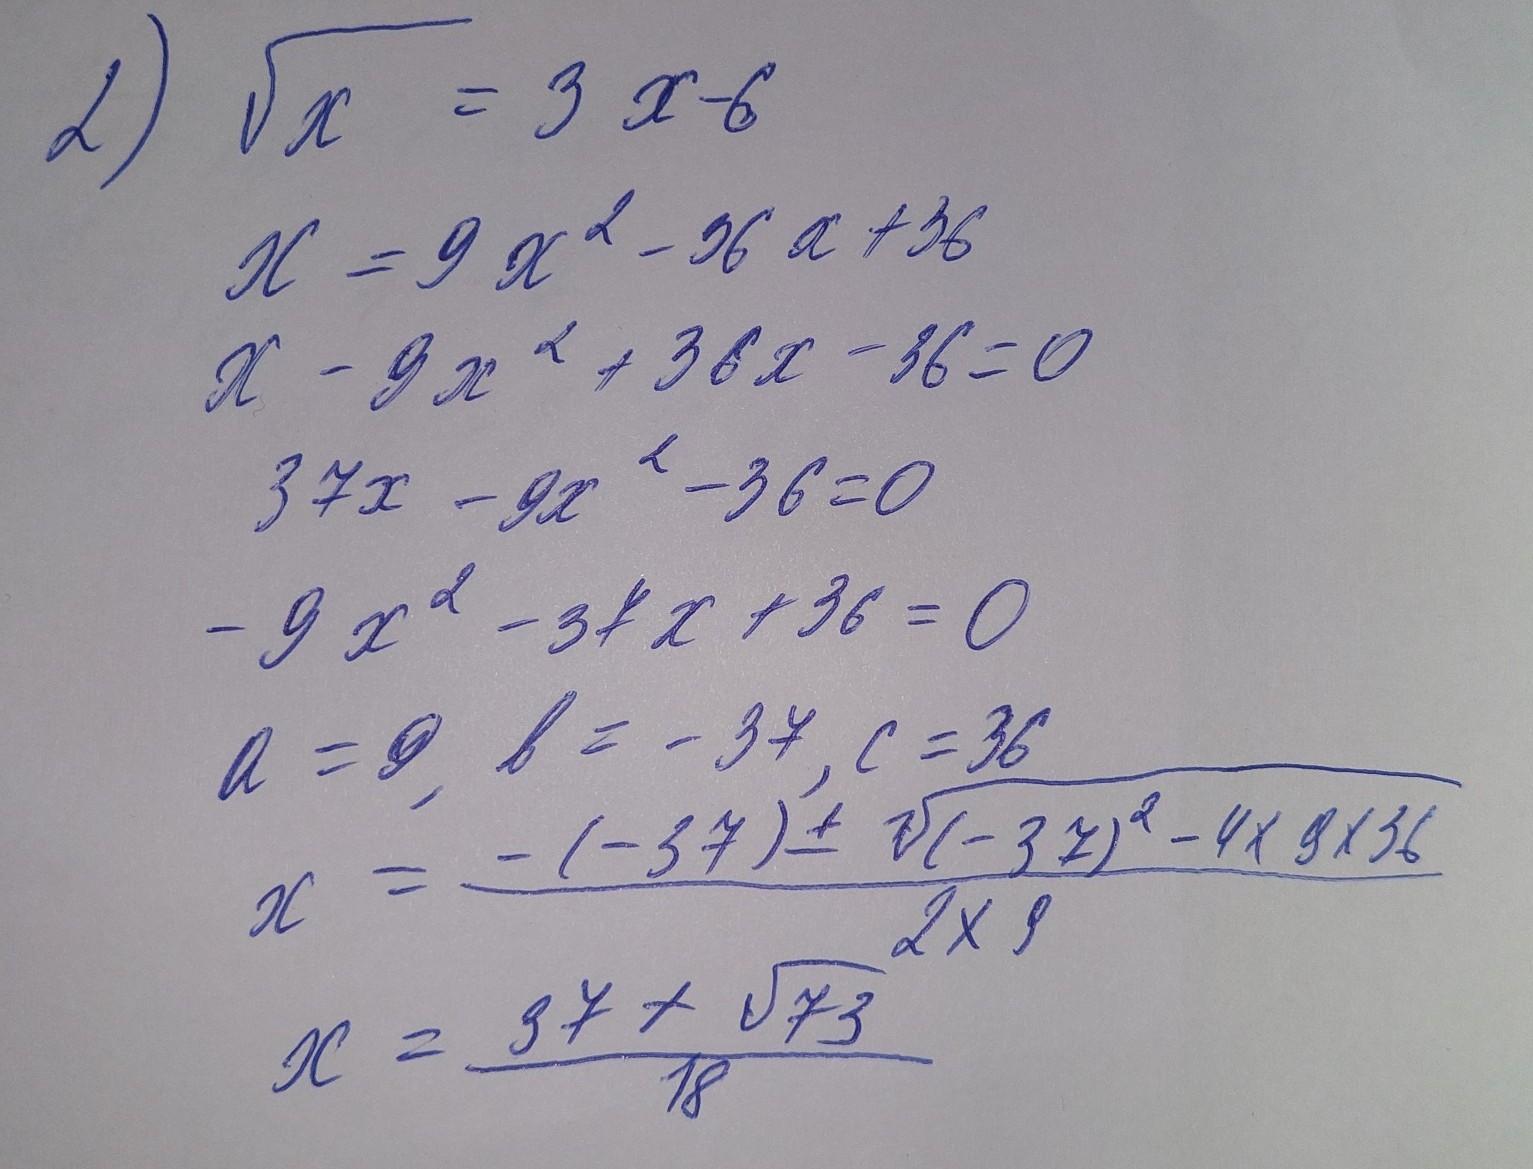 2) √x = 3x-6
x = 9x² - 36x + 36
x - 9x² + 36x - 36 = 0
37x - 9x² - 36 = 0
- 9x² - 37x + 36 = 0
a = 9, b = - 37, c = 36
x = (-(-37) ± √((-37)² - 4x9x36)) / (2x9)
x = (37 + √73) / 18